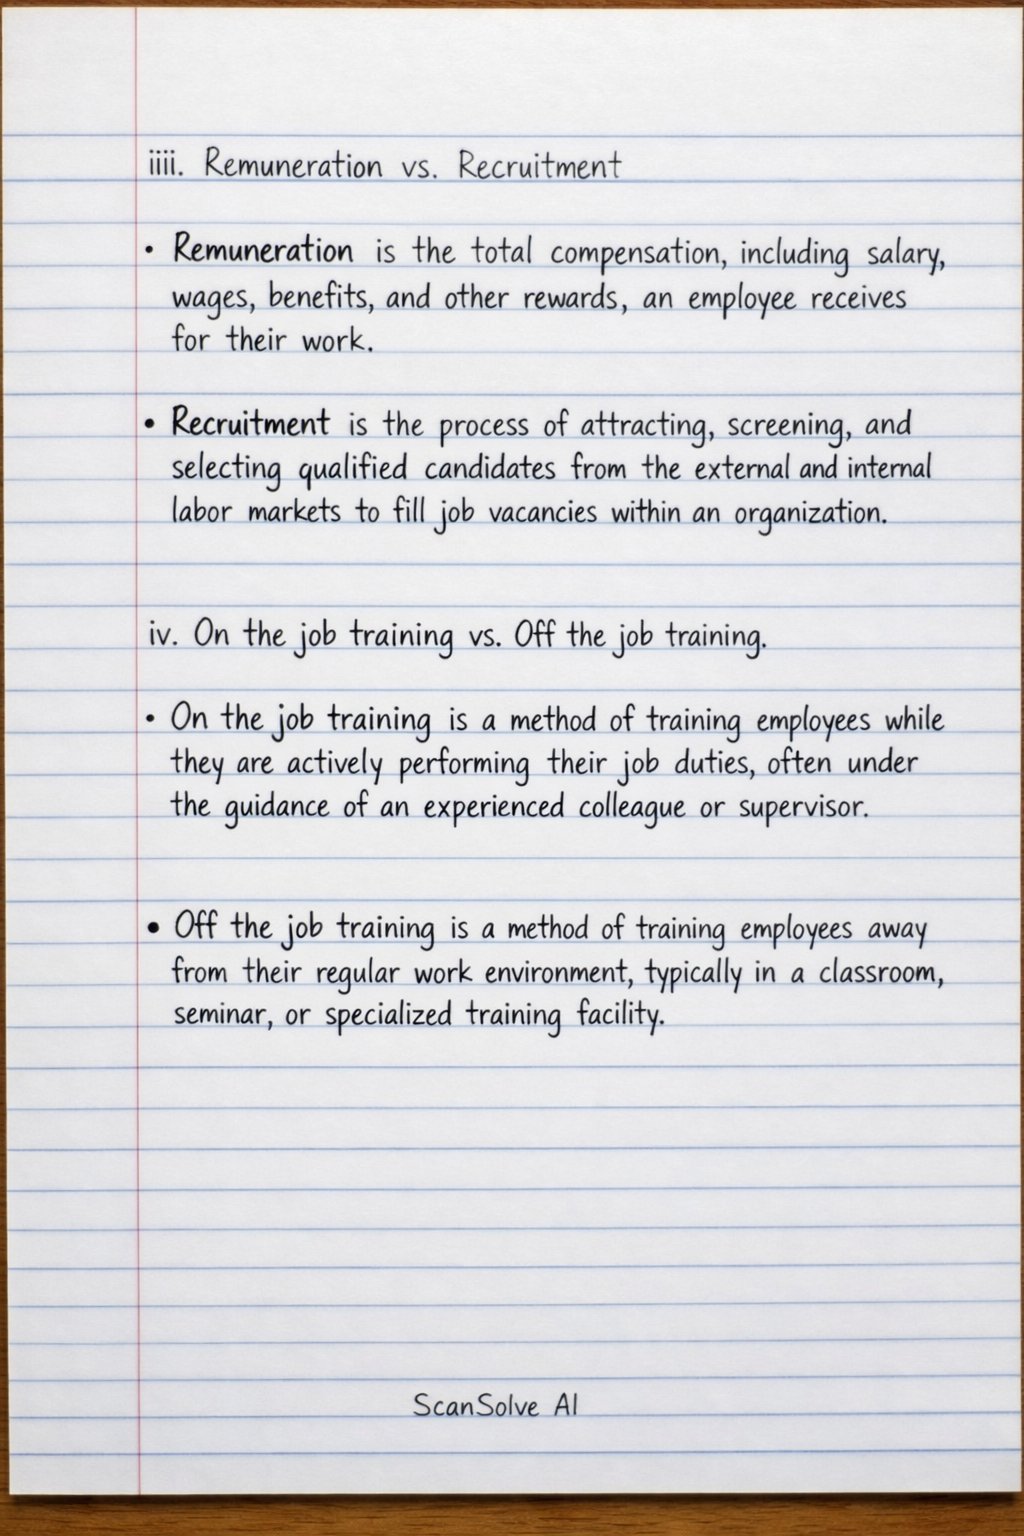 iiii. Remuneration vs. Recruitment
• Remuneration is the total compensation, including salary,
wages, benefits, and other rewards, an employee receives
for their work.
• Recruitment is the process of attracting, screening, and
selecting qualified candidates from the external and internal
labor markets to fill job vacancies within an organization.
iv. On the job training vs. Off the job training.
• On the job training is a method of training employees while
they are actively performing their job duties, often under
the guidance of an experienced colleague or supervisor.
• Off the job training is a method of training employees away
from their regular work environment, typically in a classroom,
seminar, or specialized training facility.
ScanSolve AI